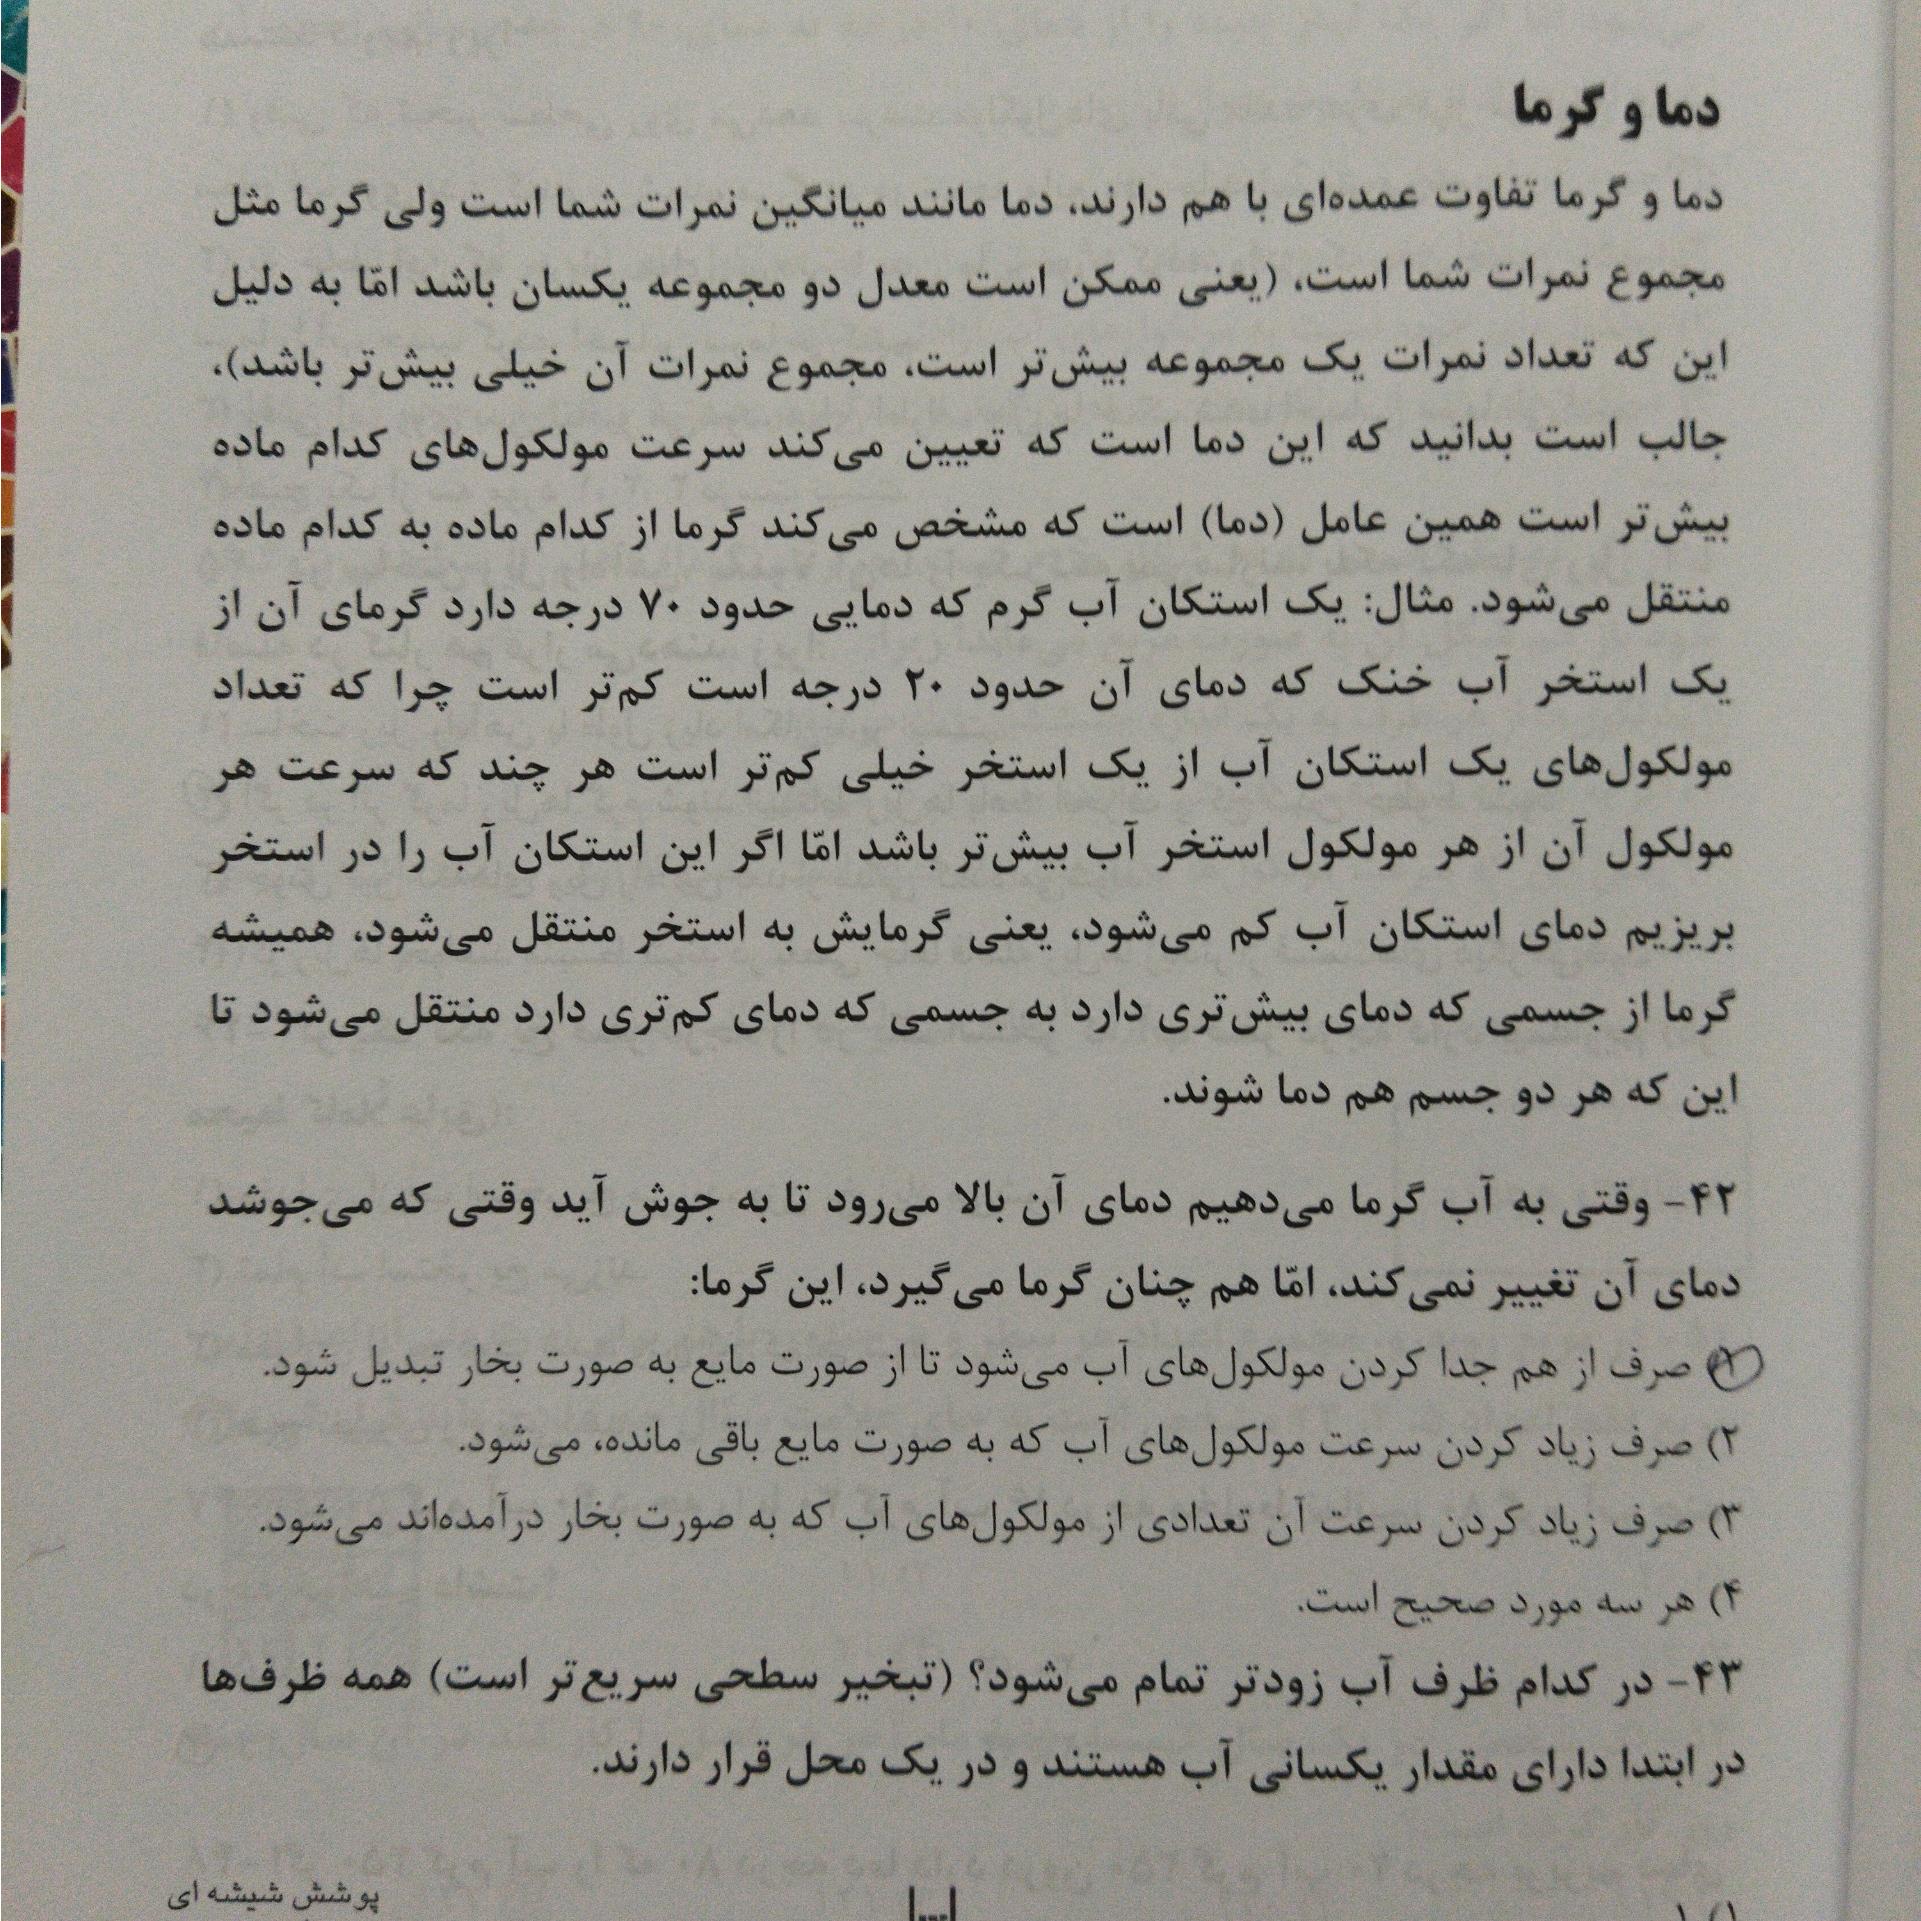 دما و گرما
دما و گرما تفاوت عمده‌ای با هم دارند، دما مانند میانگین نمرات شما است ولی گرما مثل
مجموع نمرات شما است، (یعنی ممکن است معدل دو مجموعه یکسان باشد امّا به دلیل
این که تعداد نمرات یک مجموعه بیش‌تر است، مجموع نمرات آن خیلی بیش‌تر باشد)،
جالب است بدانید که این دما است که تعیین می‌کند سرعت مولکول‌های کدام ماده
بیش‌تر است همین عامل (دما) است که مشخص می‌کند گرما از کدام ماده به کدام ماده
منتقل می‌شود. مثال: یک استکان آب گرم که دمایی حدود ۷۰ درجه دارد گرمای آن از
یک استخر آب خنک که دمای آن حدود ۲۰ درجه است کم‌تر است چرا که تعداد
مولکول‌های یک استکان آب از یک استخر خیلی کم‌تر است هر چند که سرعت هر
مولکول آن از هر مولکول استخر آب بیش‌تر باشد امّا اگر این استکان آب را در استخر
بریزیم دمای استکان آب کم می‌شود، یعنی گرمایش به استخر منتقل می‌شود، همیشه
گرما از جسمی که دمای بیش‌تری دارد به جسمی که دمای کم‌تری دارد منتقل می‌شود تا
این که هر دو جسم هم دما شوند.
۴۲- وقتی به آب گرما می‌دهیم دمای آن بالا می‌رود تا به جوش آید وقتی که می‌جوشد
دمای آن تغییر نمی‌کند، امّا هم چنان گرما می‌گیرد، این گرما:
۱) صرف از هم جدا کردن مولکول‌های آب می‌شود تا از صورت مایع به صورت بخار تبدیل شود.
۲) صرف زیاد کردن سرعت مولکول‌های آب که به صورت مایع باقی مانده، می‌شود.
۳) صرف زیاد کردن سرعت آن تعدادی از مولکول‌های آب که به صورت بخار درآمده‌اند می‌شود.
۴) هر سه مورد صحیح است.
۴۳- در کدام ظرف آب زودتر تمام می‌شود؟ (تبخیر سطحی سریع‌تر است) همه ظرف‌ها
در ابتدا دارای مقدار یکسانی آب هستند و در یک محل قرار دارند.
پوشش شیشه ای